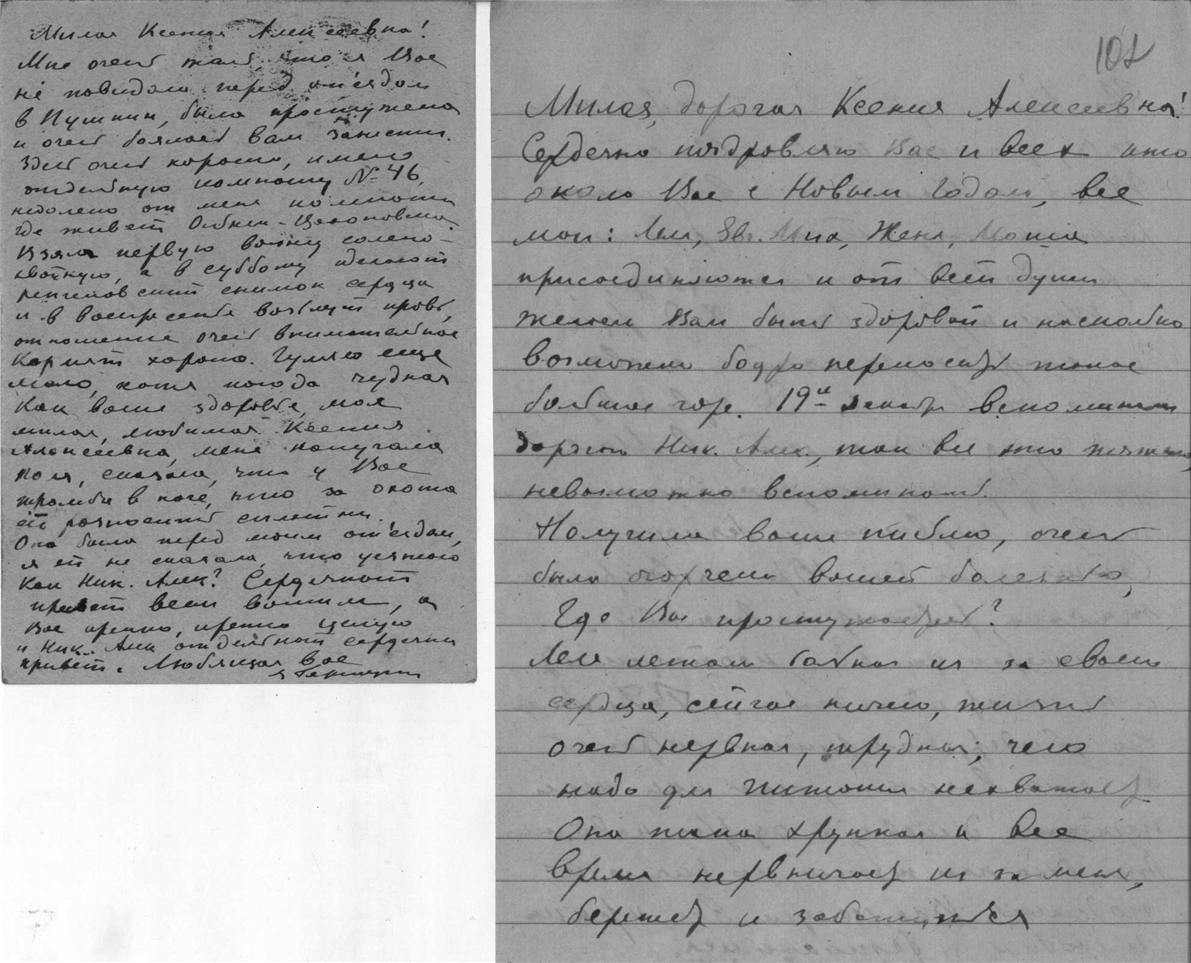 Милая Ксения Алексеевна!
Мне очень жаль, что я Вас
не повидала перед отъездом
в Пушкин, была простужена
и очень боялась Вам занести.
Здесь очень хорошо, имею
отдельную комнату № 46,
недалеко от меня комната
где живет
Взяла первую ванну солено-
хвойную, а в субботу делают
рентгеновский снимок сердца
и в воскресенье возьмут кровь,
отношение очень внимательное
Кормят хорошо. Гуляю еще
мало, хотя погода чудная
Как ваше здоровье, моя
милая, любимая Ксения
Алексеевна, меня напугала
сказала, что у Вас
тромб в ноге, что за охота
ей разносить сплетни.
Она была перед моим отъездом,
я ей не сказала, что уезжаю
Как Ник. Алек? Сердечный
привет всем вашим, а
Вас крепко, крепко целую
и Ник. Алек отдельный сердечный
привет. Любящая Вас
102
Милая, дорогая Ксения Алексеевна!
Сердечно поздравляю Вас и всех кто
около Вас с Новым Годом, все
мои: Леля, Евг. Мих, Женя,
присоединяются и от всей души
желаем Вам быть здоровой и насколько
возможно бодро переносить такое
большое горе. 19го декабр вспоминали
дорогого Ник. Алек., так все это тяжело,
невозможно вспоминать.
Получила ваше письмо, очень
была огорчена вашей болезнью,
Где Вы простужаетесь?
Леля летом болела из за своего
сердца, сейчас ничего, жизнь
очень нервная, трудная; чего
надо для питания нехватает
Она такая хрупкая и все
время нервничает из за меня,
бережет и заботится